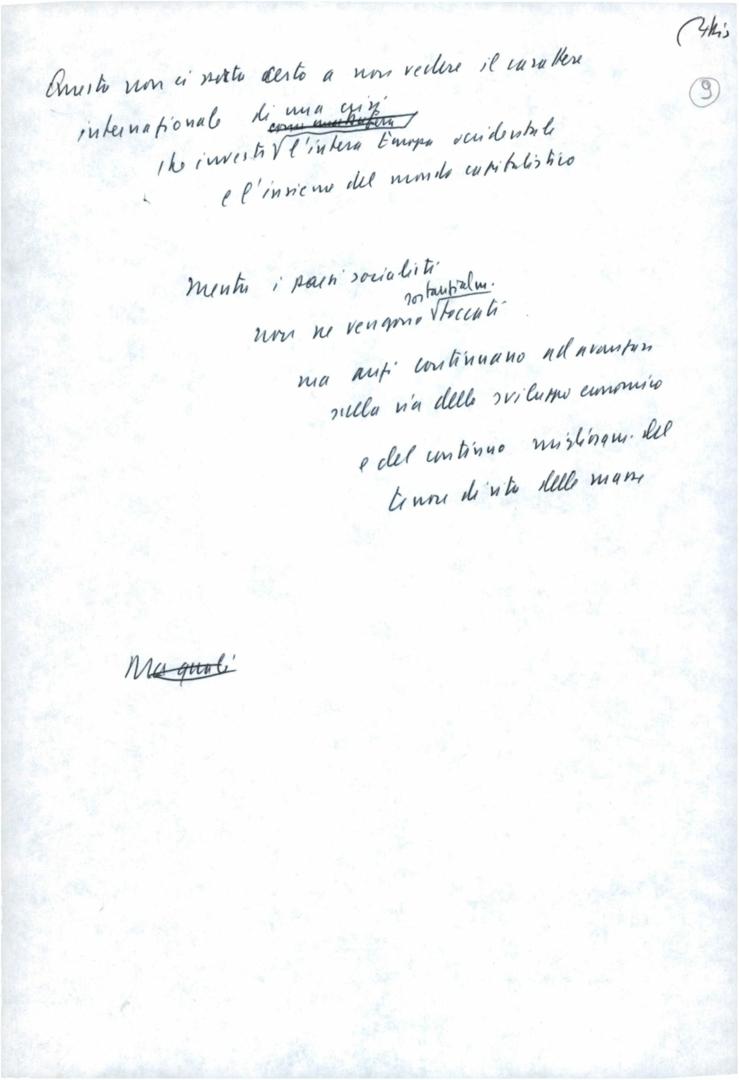 4bis
9
Questo non ci porta certo a non vedere il carattere
internazionale di una crisi
che investe l'intera Europa occidentale
e l'insieme del mondo capitalistico
mentre i paesi socialisti
sostanzialm.
non ne vengono toccati
ma anzi continuano ad avanzare
sulla via dello sviluppo economico
e del continuo miglioram. del
tenore di vita delle masse
Ma quali